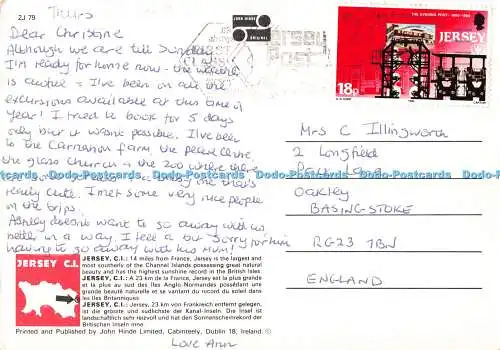 2J 79
Thurs
Dear Christine
Although we are till Sunday
I'm ready for home now - the weather
is awful - I've been on all the
excursions available at this time of
year! I tried to book for 5 days
only but it wasnt possible. I've been
to the Carnation farm, the
the glass Church + the Zoo where there
one that's
really cute. I met some very nice people
on the trips.
Ashley doesn't want to go away with us
neither in a way. I feel a bit sorry for him
having to go away with his Mum!
Love Ann
JOHN HINDE
JERSEY
POST
THE EVENING POST
JERSEY
18p
Mrs C Illingworth
2 Longfield
Oakley
BASINGSTOKE
RG23 7BN
ENGLAND
Dodo-Postcards Dodo-Postcards Dodo-Postcards Dodo-Postcards Dodo-Postcards Dodo-Postcards
JERSEY C.I.
JERSEY, C.I.: 14 miles from France, Jersey is the largest and
most southerly of the Channel Islands possessing great natural
beauty and has the highest sunshine record in the British Isles.
JERSEY, C.I.: A 23 km de la France, Jersey est la plus
grande et la plus au sud des Iles Anglo Normandes possédant une
grande beauté naturelle et se vantant du record du soleil dans
les Iles Britanniques
JERSEY, C.I.: Jersey, 23 km von Frankreich entfernt gelegen,
ist die grösste und südlichste der Kanal-Inseln. Die Insel ist
landschaftlich sehr reizvoll und hat den Sonnenscheinrekord der
Britischen Inseln inne
Printed and Published by John Hinde Limited, Cabinteely, Dublin 18, Ireland. ©